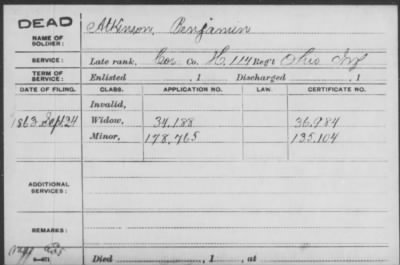 DEAD
NAME OF SOLDIER: Atkinson, Benjamin
SERVICE: Late rank, Cor Co. H, 114 Reg't Ohio Inf
TERM OF SERVICE: Enlisted , 1 Discharged , 1
DATE OF FILING. CLASS. APPLICATION NO. LAW. CERTIFICATE NO.
Invalid,
1863 Sept 24 Widow, 34.188 36.984
Minor, 178.765 135.104
ADDITIONAL SERVICES:
REMARKS:
Died , 1 , at